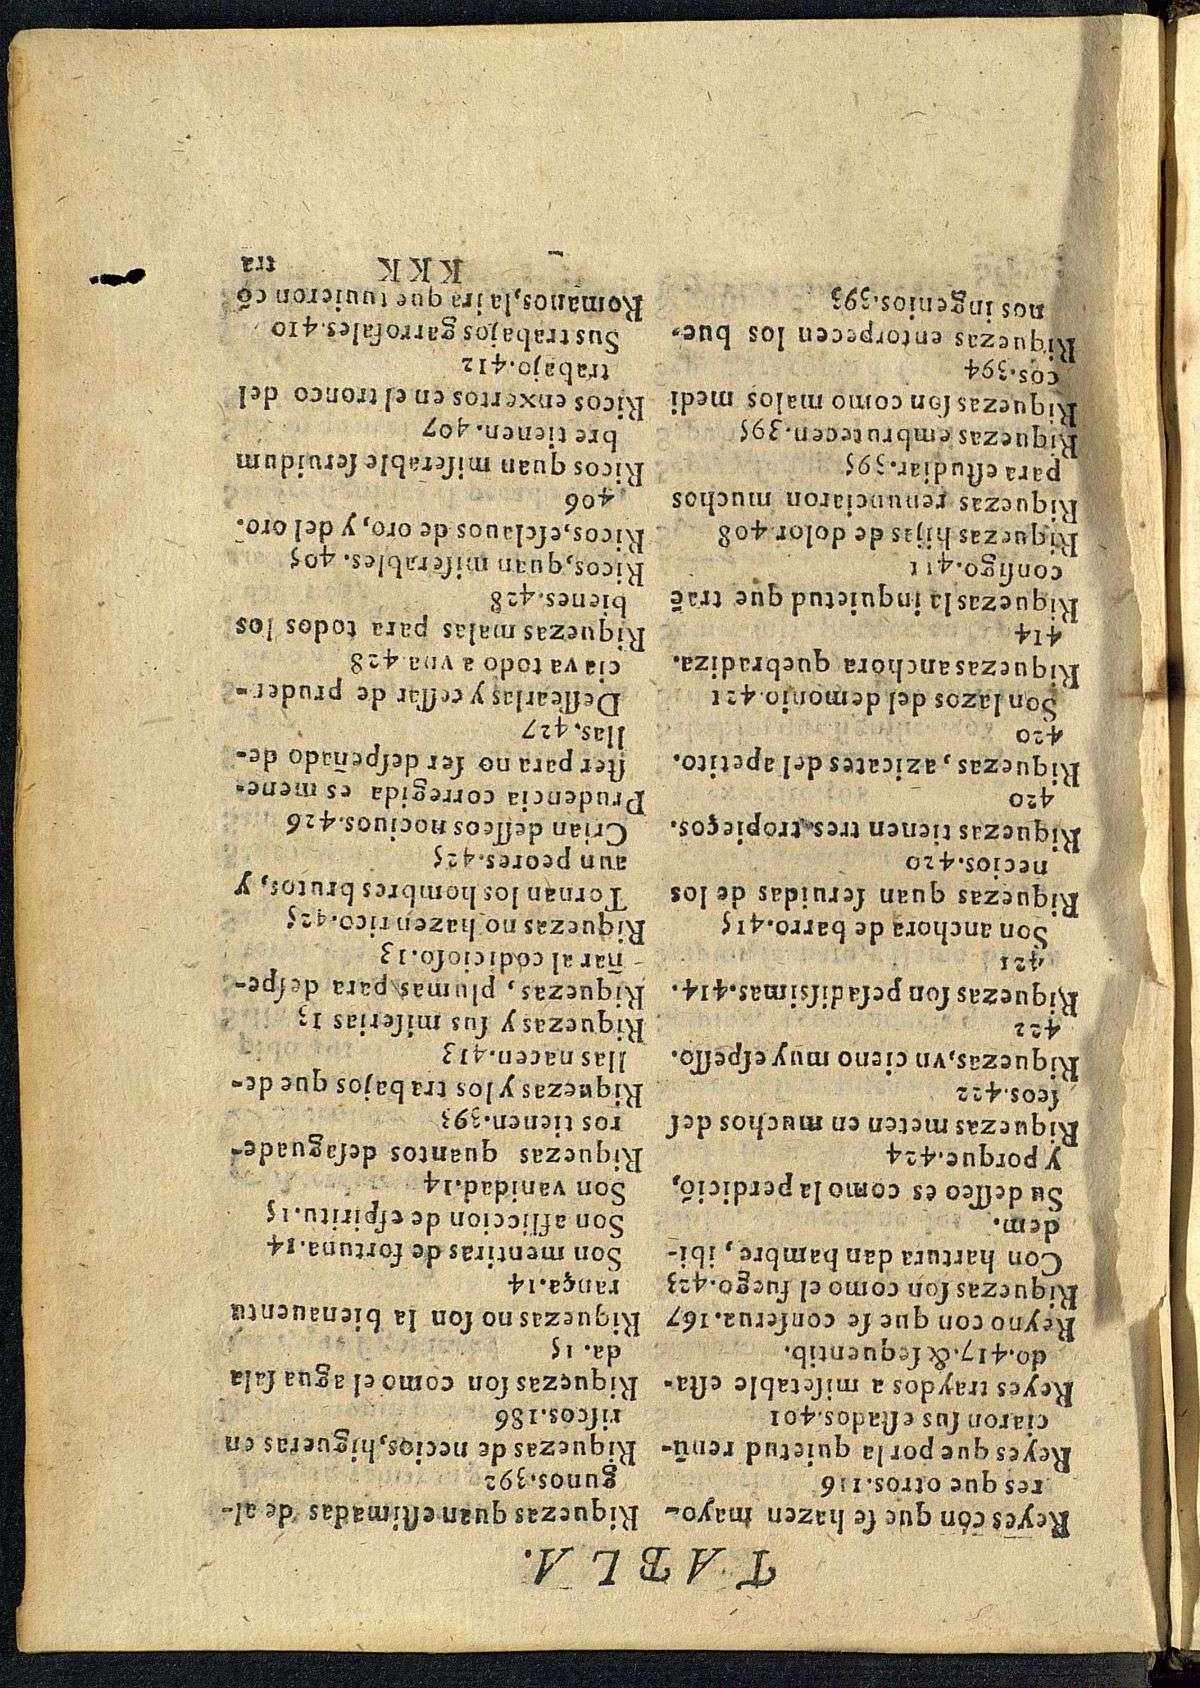 TABLA.
Reyes con que ſe hazen mayo-
res que otros.116
Reyes que por la quietud renũ-
ciaron ſus eſtados.401
Reyes traydos a miſetable eſta-
do.417.& ſequentib.
Reyno con que ſe conſerua.167
Riquezas ſon como el fuego.423
Con hartura dan hambre, ibi-
dem.
Su deſſeo es como la perdició,
y porque.424
Riquezas meten en muchos deſ
ſeos.422
Riquezas, vn cieno muy eſpeſſo.
422
Riquezas ſon peſadiſsimas.414.
421
Son anchora de barro.415
Riquezas quan ſeruidas de los
necios.420
Riquezas tienen tres tropieços.
420
Riquezas, azicates del apetito.
420
Son lazos del demonio.421
Riquezas anchora quebradiza.
414
Riquezas la inquietud que traẽ
conſigo.411
Riquezas hijas de dolor.408
Riquezas renunciaron muchos
para eſtudiar.395
Riquezas embrutecen.395
Riquezas ſon como malos medi
cos.394
Riquezas entorpecen los bue-
nos ingenios.393
Riquezas quan eſtimadas de al-
gunos.392
Riquezas de necios, higueras en
riſcos.186
Riquezas ſon como el agua ſala
da.15
Riquezas no ſon la bienauentu
rança.14
Son mentiras de fortuna.14
Son afliccion de eſpiritu.15
Son vanidad.14
Riquezas quantos deſaguade-
ros tienen.393
Riquezas y los trabajos que de-
llas nacen.413
Riquezas y ſus miſerias 13
Riquezas, plumas para deſpe-
ñar al codicioſo.13
Riquezas no hazen rico.425
Tornan los hombres brutos, y
aun peores.425
Crian deſſeos nociuos.426
Prudencia corregida es mene-
ſter para no ſer deſpeñado de-
llas.427
Deſſearlas y ceſſar de pruden-
cia va todo a vna 428
Riquezas malas para todos los
bienes.428
Ricos, quan miſerables.405
Ricos, eſclauos de oro, y del oro.
406
Ricos quan miſerable ſeruidum
bre tienen.407
Ricos enxertos en el tronco del
trabajo.412
Sus trabajos garrofales.410
Romanos, la ira que tuuieron cõ
KKK
tra